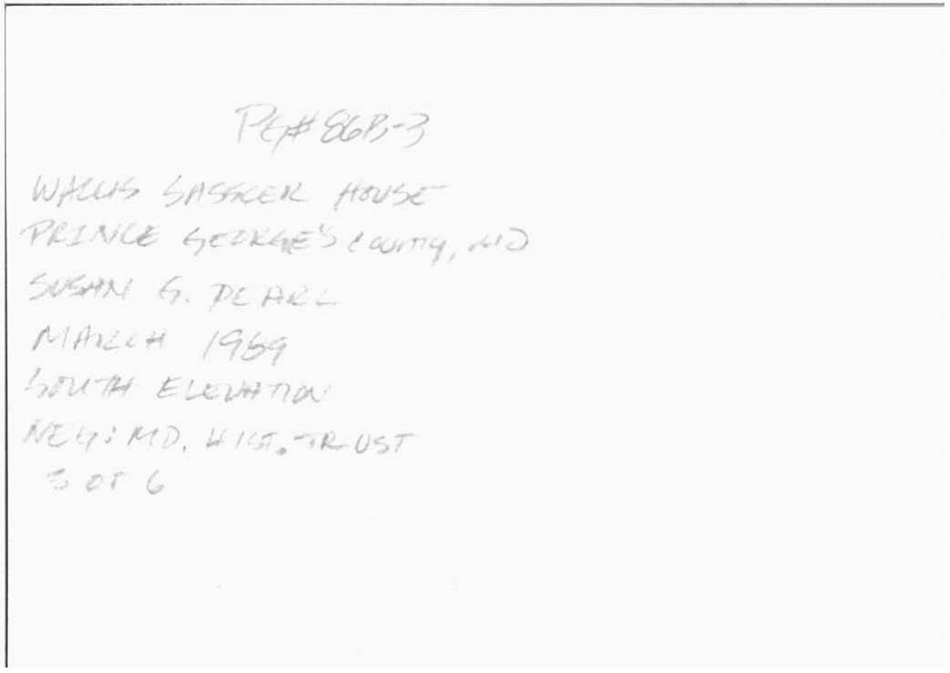 PG# 86B-3
WALLIS SASSCER HOUSE
PRINCE GEORGE'S COUNTY, MD
SUSAN G. PEARL
MARCH 1989
SOUTH ELEVATION
NEG: MD. HIST. TRUST
3 OF 6